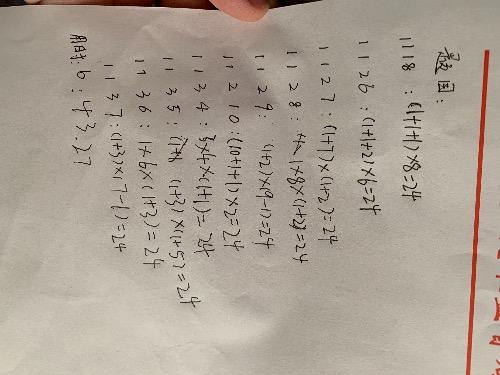 题国:
1 1 1 8 : (1+1+1)×8=24
1 1 2 6 : (1+1+2)×6=24
1 1 2 7 : (1+7)×(1+2)=24
1 1 2 8 : 1×8×(1+2)=24
1 1 2 9 : (1+2)×(9-1)=24
1 1 2 10 : (10+1+1)×2=24
1 1 3 4 : 3×4×(1+1)=24
1 1 3 5 : (1+3)×(1+5)=24
1 1 3 6 : 1×6×(1+3)=24
1 1 3 7 : (1+3)×(7-1)=24
用时: 6 : 43.27